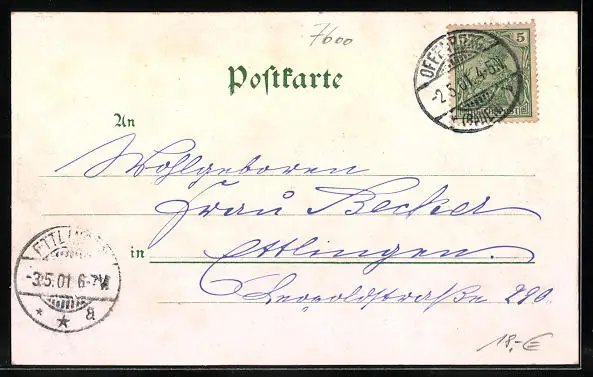 7600
5
OFFENBURG
-2.5.01. 4-5N
(BADEN)
Postkarte
An
Wohlgeboren
Frau Becker
in Ettlingen.
Leopoldstraße
ETTLINGEN
-3.5.01. 6-7V.
* ★ a
18,-€